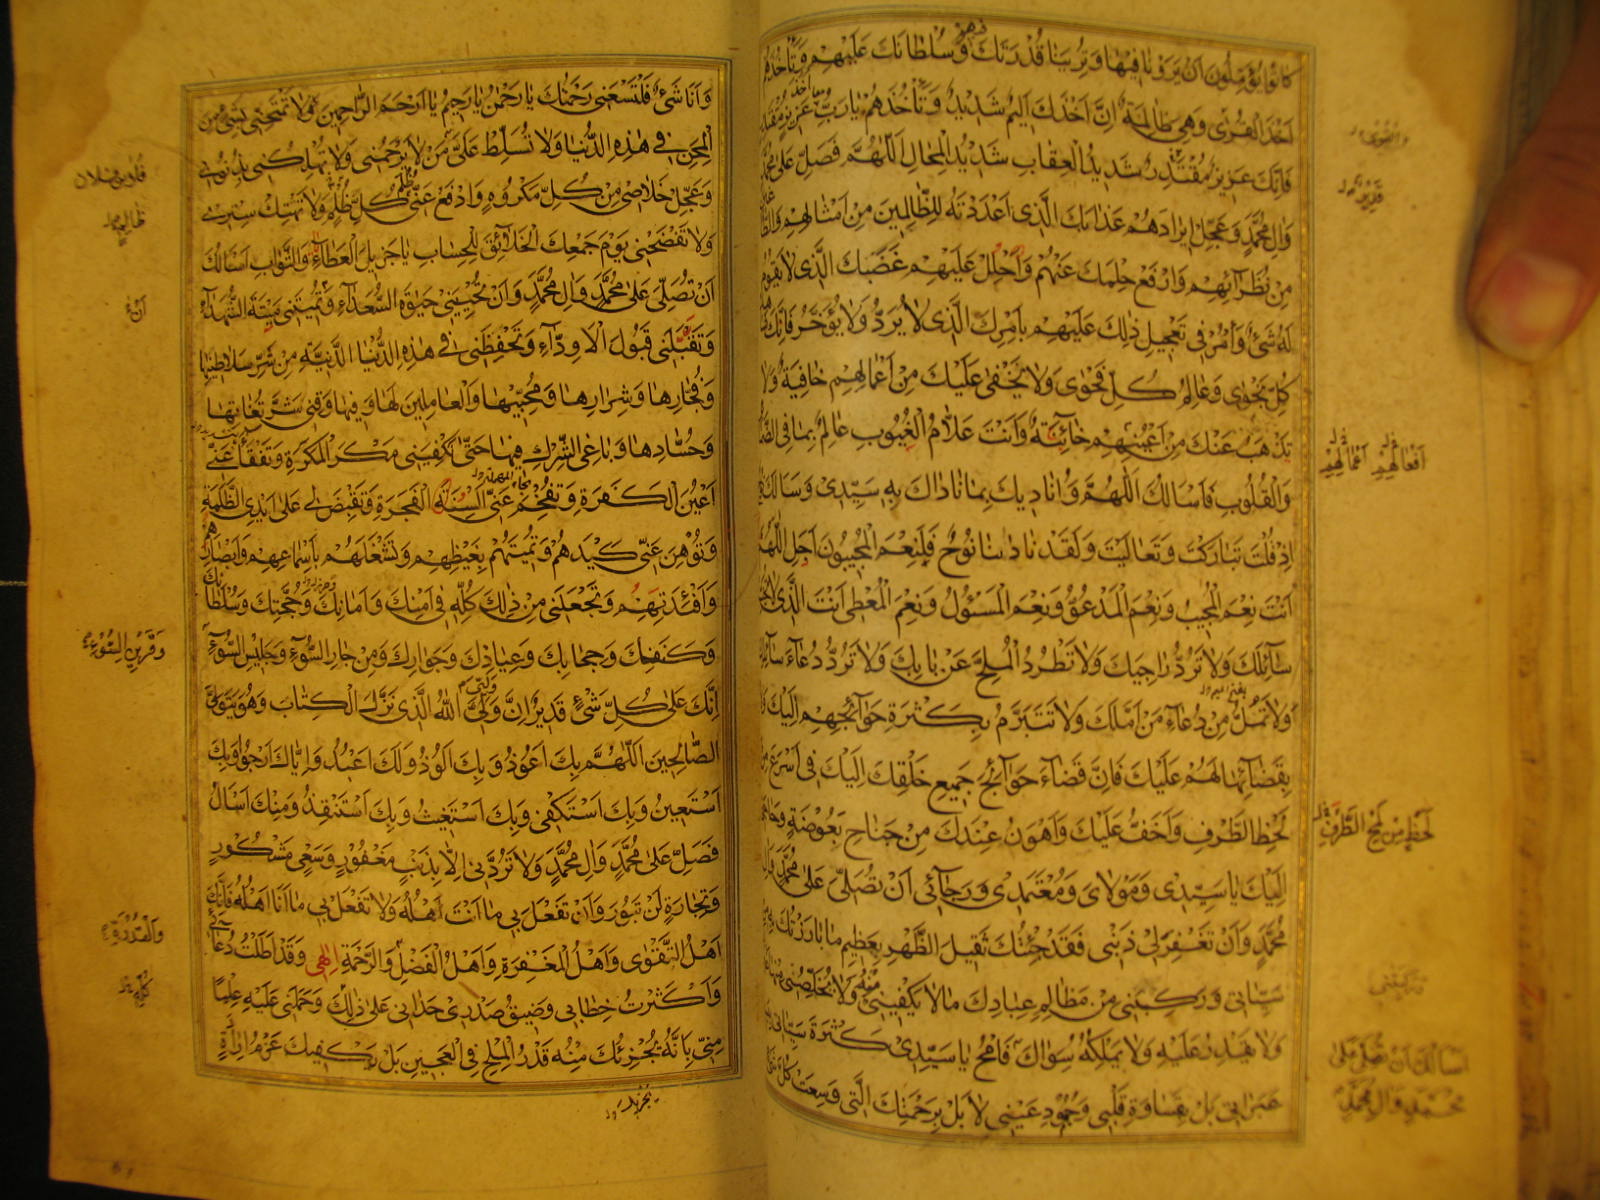 كانوا يؤملون ان يرونا فيها وترينا قدرتك وسلطانك عليهم وتأخذهم
اخذ القرى وهي ظالمة ان اخذك اليم شديد وتأخذهم يا رب اخذ عزيز مقتدر
فانك عزيز مقتدر شديد العقاب شديد المحال اللهم فصل على محمد
وال محمد وعجل ايرادهم عذابك الذى اعددته للظالمين من امثالهم
من نظرائهم وارفع حلمك عنهم واحلل عليهم غضبك الذى لا يقوم
له شئ وأمر فى تعجيل ذلك عليهم بامرك الذى لا يرد ولا يؤخر فانك
كل نجوى وعالم كل فحوى ولا يخفى عليك من اعمالهم خافية ولا
تذهب عنك من اعينهم خائنة وانت علام الغيوب عالم بما فى
والقلوب فاسالك اللهم واناديك بما ناداك به سيدى وسالك
اذ قلت تباركت وتعاليت ولقد نادانا نوح فلنعم المجيبون اجل اللهم
انت نعم المجيب ونعم المدعو ونعم المسؤل ونعم المعطى انت الذى لا
سائلك ولا ترد راجيك ولا تطرد الملح عن بابك ولا ترد دعاء
ولا تمل من دعاء من املك ولا تتبرم بكثرة حوائجهم اليك
بقضائها لهم عليك فان قضاء حوائج جميع خلقك اليك فى اسرع
لحظ الطرف واخف عليك واهون عندك من جناح بعوضة
اليك يا سيدى ومولاى ومعتمدى ورجائى ان تصلى على محمد
محمد وان تغفر لى ذنبى فقد جئتك ثقيل الظهر بعظيم ما بارزتك به
سيئاتى وركبنى من مظالم عبادك ما لا يكفينى منه ولا يخلصنى
ولا يقدر عليه ولا يملكه سواك فامح يا سيدى كثرة سيئاتى
عبراتى بل بقساوة قلبى وجمود عينى لا بل برحمتك التى وسعت كل
افعالهم اعمالهم
لحظ من لمح الطرف
اسألك ان تصلى على
محمد وال محمد
وانا شئ فلتسعنى رحمتك يا رحمن يا رحيم يا ارحم الراحمين ولا تمتحنى بشئ من
المحن فى هذه الدنيا ولا تسلط على من لا يرحمنى ولا تهلكنى بذنوبى
وعجل خلاصى من كل مكروه وادفع عنى كل ظلم ولا تهتك سترى
ولا تفضحنى يوم جمعك الخلائق للحساب يا جزيل العطاء والثواب اسالك
ان تصلى على محمد وال محمد وان تحيينى حيوة السعداء وتميتنى ميتة الشهداء
وتقبلنى قبول الاوداء وتحفظنى فى هذه الدنيا الدنية من شر سلاطينها
وفجارها وشرارها ومحبيها والعاملين لها وفيها وقنى شر تغاتها
وحسادها وباغى الشرك فيها حتى تكفينى مكر المكرة وتفقأ عنى
اعين الكفرة وتفحم عنى السنة الفجرة وتقبض لى على ايدى الظلمة
وتوهن عنى كيدهم وتميتهم بغيظهم وتشغلهم باسماعهم وابصارهم
وافئدتهم وتجعلنى من ذلك كله فى امنك وامانك وحجتك وسلطانك
وكنفك وحجابك وعياذك وجوارك ومن جار السوء وجليس السوء
انك على كل شئ قدير ان ولى الله الذى نزل الكتاب وهو يتولى
الصالحين اللهم بك اعوذ وبك الوذ ولك اعبد واياك ارجو وبك
استعين وبك استكفى وبك استغيث وبك استنقذ ومنك اسال
فصل على محمد وال محمد ولا تردنى الا بذنب مغفور وسعى مشكور
وتجارة لن تبور وان تفعل بى ما انت اهله ولا تفعل بى ما انا اهله فانك
اهل التقوى واهل المغفرة واهل الفضل والرحمة الهى وقد اطلت دعائى
واكثرت خطابى وضيق صدرى حدانى على ذلك وحملنى عليه علما
منى بانه يجزئك منه قدر الملح فى العجين بل يكفيك عزم ارادة
وقرين السوء
والقدرة